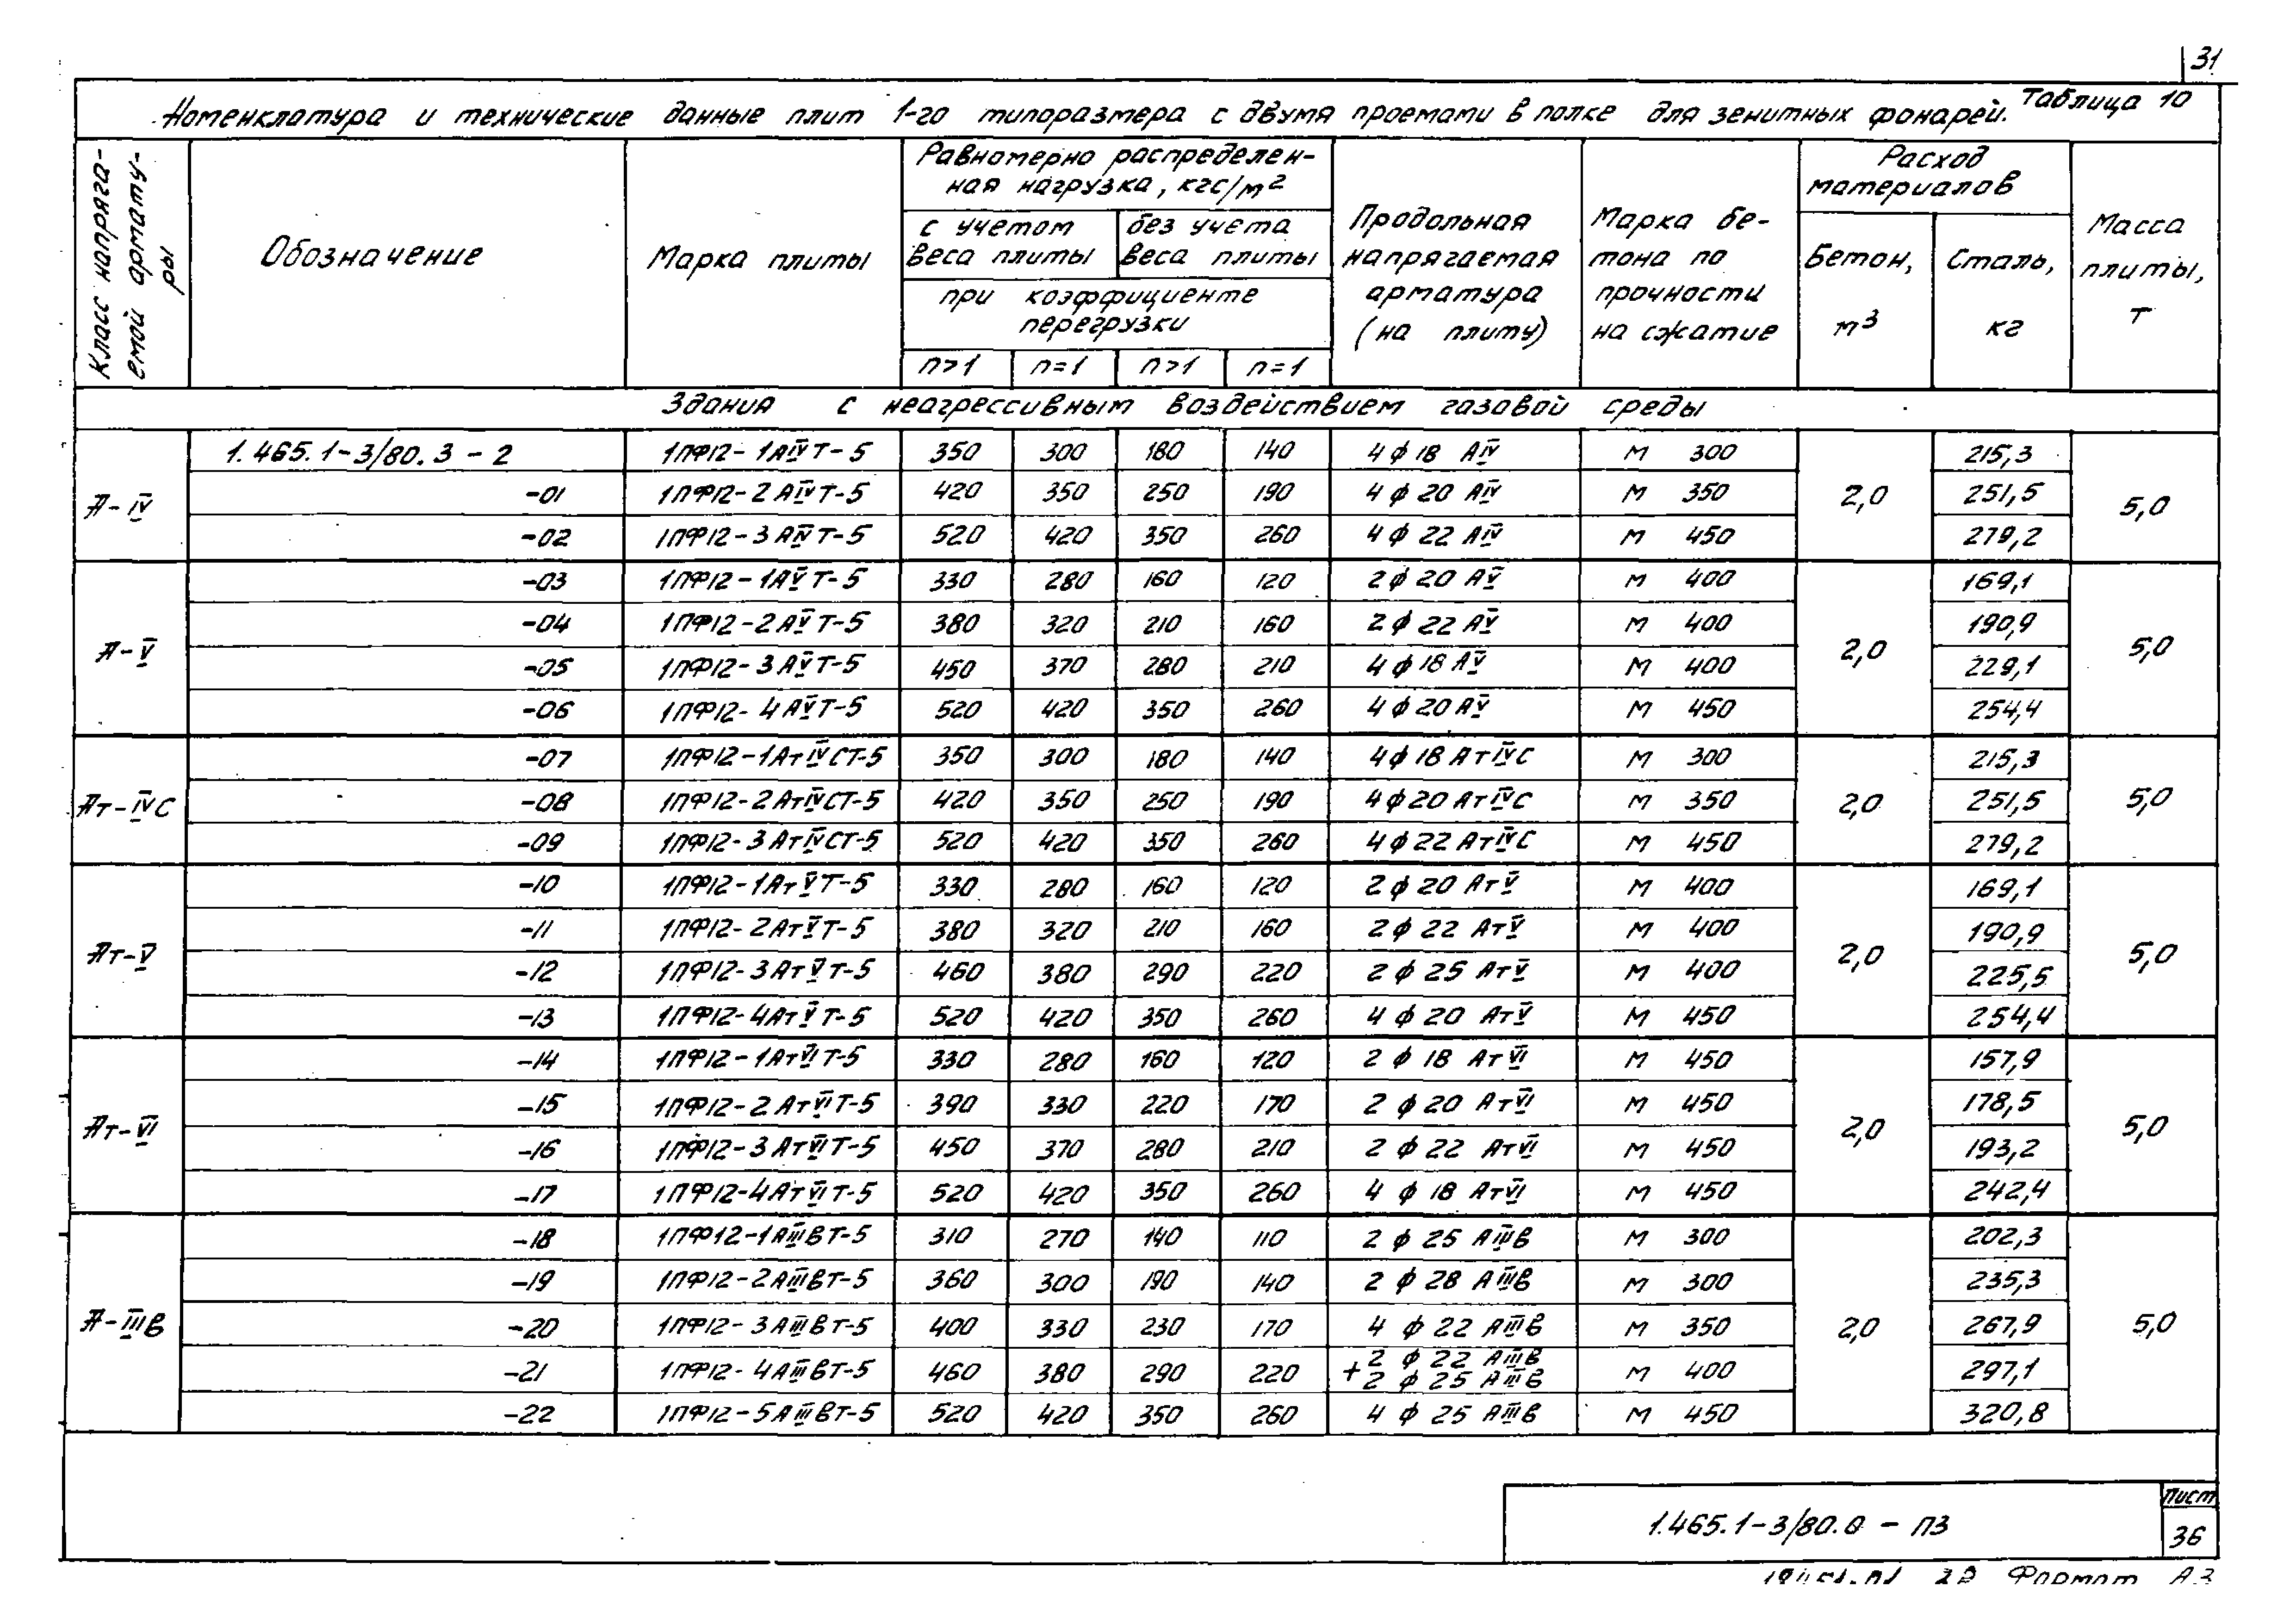 31
Таблица 10
Номенклатура и технические данные плит 1-го типоразмера с двумя проемами в полке для зенитных фонарей.
Класс напрягаемой арматуры
Обозначение
Марка плиты
Равномерно распределен-
ная нагрузка, кгс/м²
с учетом
веса плиты
без учета
веса плиты
при коэффициенте
перегрузки
n>1 n=1 n>1 n=1
Продольная
напрягаемая
арматура
(на плиту)
Марка бе-
тона по
прочности
на сжатие
Расход
материалов
Бетон,
м³
Сталь,
кг
Масса
плиты,
т
Здания с неагрессивным воздействием газовой среды
А-IV 2,0 5,0
1.465.1-3/80.3-2 1ПФ12-1АIVТ-5 350 300 180 140 4ф18 АIV М 300 215,3
-01 1ПФ12-2АIVТ-5 420 350 250 190 4ф20 АIV М 350 251,5
-02 1ПФ12-3АIVТ-5 520 420 350 260 4ф22 АIV М 450 279,2
А-V 2,0 5,0
-03 1ПФ12-1АVТ-5 330 280 160 120 2ф20 АV М 400 169,1
-04 1ПФ12-2АVТ-5 380 320 210 160 2ф22 АV М 400 190,9
-05 1ПФ12-3АVТ-5 450 370 280 210 4ф18 АV М 400 229,1
-06 1ПФ12-4АVТ-5 520 420 350 260 4ф20 АV М 450 254,4
Ат-IVС 2,0 5,0
-07 1ПФ12-1АтIVСТ-5 350 300 180 140 4ф18 АтIVС М 300 215,3
-08 1ПФ12-2АтIVСТ-5 420 350 250 190 4ф20 АтIVС М 350 251,5
-09 1ПФ12-3АтIVСТ-5 520 420 350 260 4ф22 АтIVС М 450 279,2
Ат-V 2,0 5,0
-10 1ПФ12-1АтVТ-5 330 280 160 120 2ф20 АтV М 400 169,1
-11 1ПФ12-2АтVТ-5 380 320 210 160 2ф22 АтV М 400 190,9
-12 1ПФ12-3АтVТ-5 460 380 290 220 2ф25 АтV М 400 225,5
-13 1ПФ12-4АтVТ-5 520 420 350 260 4ф20 АтV М 450 254,4
Ат-VI 2,0 5,0
-14 1ПФ12-1АтVIТ-5 330 280 160 120 2ф18 АтVI М 450 157,9
-15 1ПФ12-2АтVIТ-5 390 330 220 170 2ф20 АтVI М 450 178,5
-16 1ПФ12-3АтVIТ-5 450 370 280 210 2ф22 АтVI М 450 193,2
-17 1ПФ12-4АтVIТ-5 520 420 350 260 4ф18 АтVI М 450 242,4
А-IIIв 2,0 5,0
-18 1ПФ12-1АIIIвТ-5 310 270 140 110 2ф25 АIIIв М 300 202,3
-19 1ПФ12-2АIIIвТ-5 360 300 190 140 2ф28 АIIIв М 300 235,3
-20 1ПФ12-3АIIIвТ-5 400 330 230 170 4ф22 АIIIв М 350 267,9
-21 1ПФ12-4АIIIвТ-5 460 380 290 220 2ф22 АIIIв + 2ф25 АIIIв М 400 297,1
-22 1ПФ12-5АIIIвТ-5 520 420 350 260 4ф25 АIIIв М 450 320,8
1.465.1-3/80.0-ПЗ
Лист
36
Формат А3